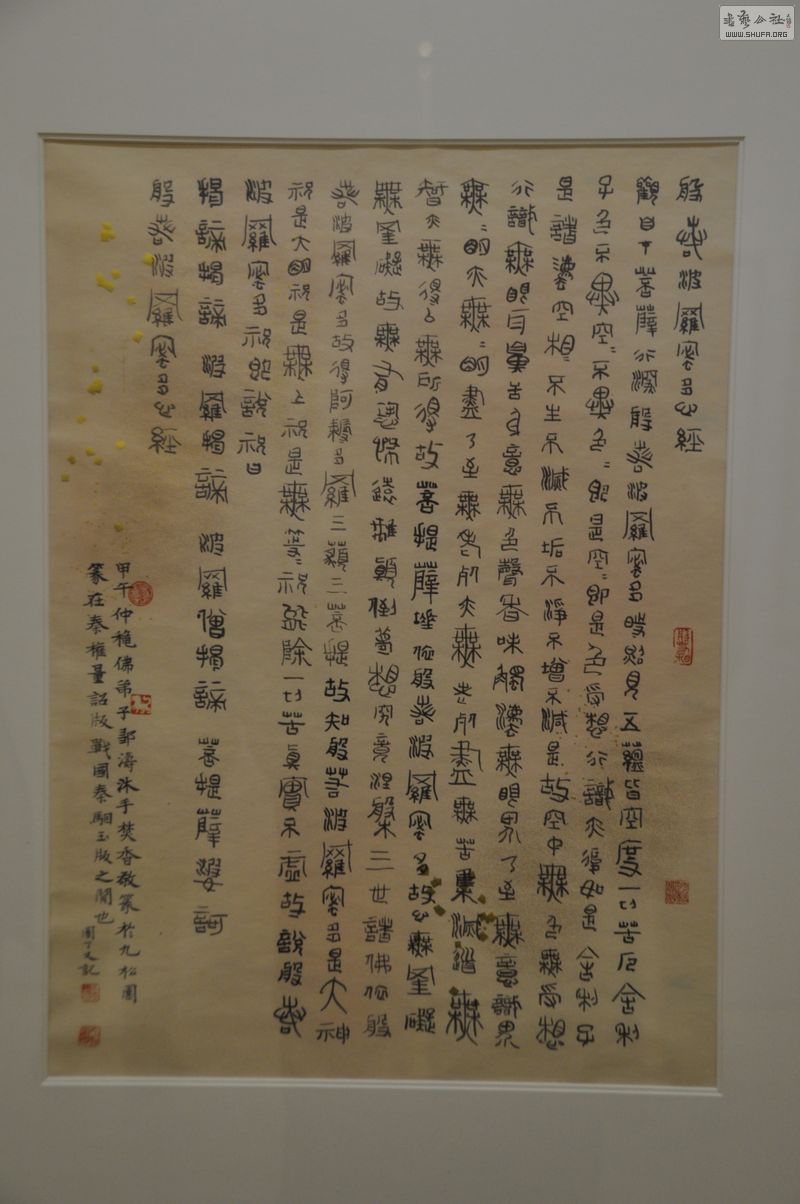 般若波羅蜜多心經
觀自在菩薩行深般若波羅蜜多時照見五蘊皆空度一切苦厄舍利
子色不異空〻不異色〻即是空〻即是色受想行識亦復如是舍利子
是諸法空相不生不滅不垢不淨不增不減是故空中無色無受想
行識無眼耳鼻舌身意無色聲香味觸法無眼界乃至無意識界
無〻明亦無〻明盡乃至無老死亦無老死盡無苦集滅道無
智亦無得以無所得故菩提薩埵依般若波羅蜜多故心無罣礙
無罣礙故無有恐怖遠離顛倒夢想究竟涅槃三世諸佛依般
若波羅蜜多故得阿耨多羅三藐三菩提故知般若波羅蜜多是大神
祝是大明祝是無上祝是無等〻祝能除一切苦真實不虛故說般若
波羅蜜多祝即說祝曰
揭諦揭諦 波羅揭諦 波羅僧揭諦 菩提薩婆訶
般若波羅蜜多心經
甲午仲穐佛弟子鄒濤沐手焚香敬篆於九松園
篆在秦權量詔版戰國秦駰玉版之間也 又記
書藝公社
WWW.SHUFA.ORG